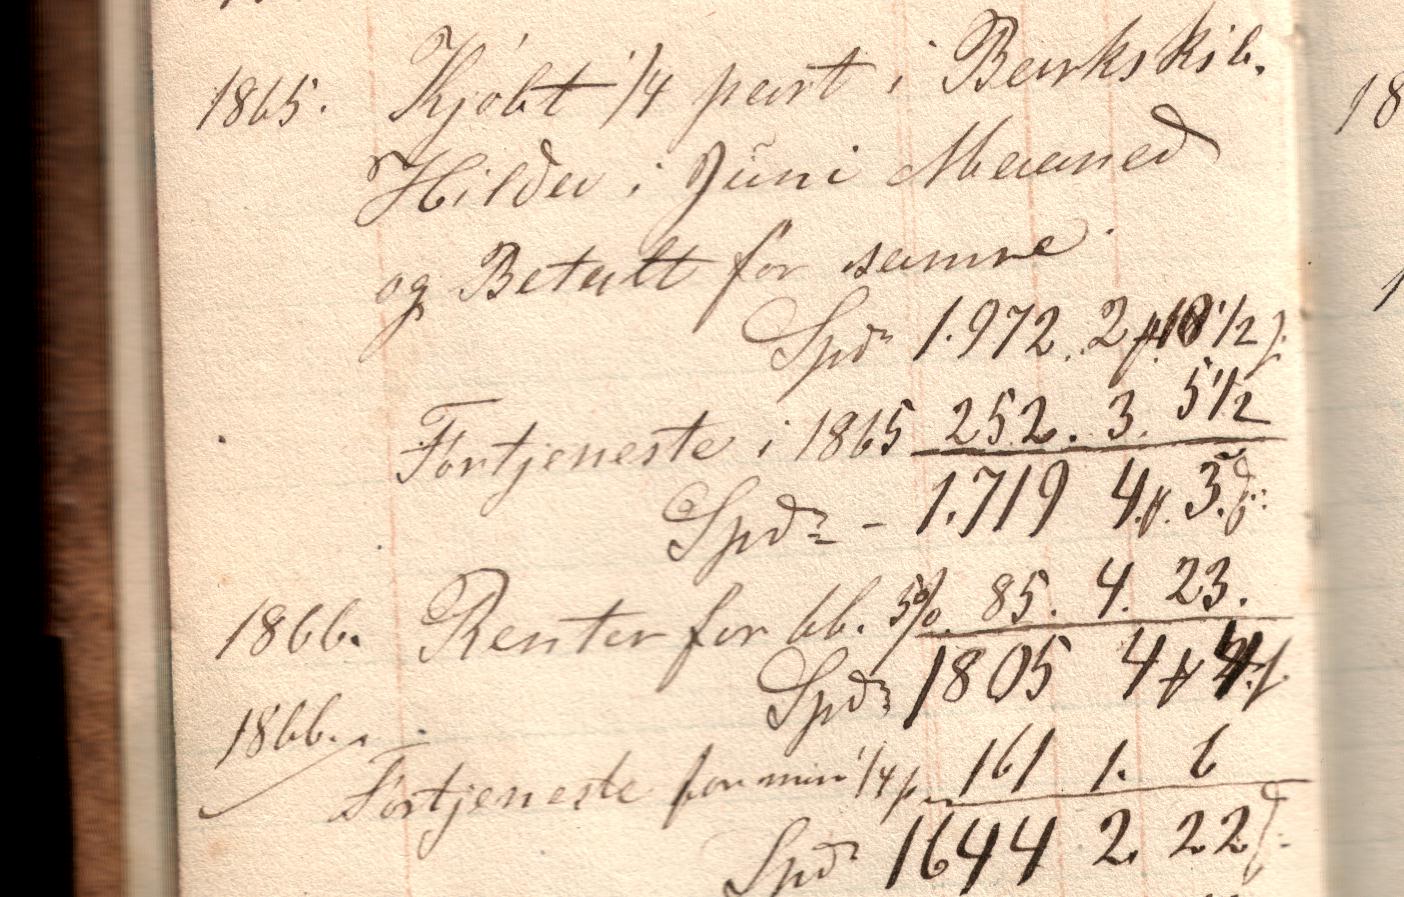 1865. Kjöbt 1/4 part i Barkskib.
Hilda i Juni Maaned
og Betalt for samme
Spd 1.972. 2 # 18 1/2 ſ.
Fortjeneste i 1865 252. 3. 5 1/2
Spd - 1.719 4 #. 3. ſ.
1866. Renter for 66. 5%. 85. 4. 23.
Spd 1805 4 # ſ.
1866. Fortjeneste for min 1/4 p. 161 1. 6
Spd 1644 2. 22 ſ.
18
1